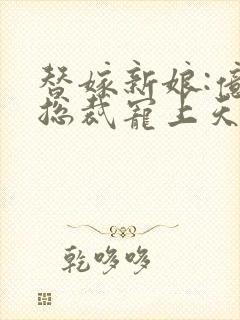 替嫁新娘:
总裁宠上天
乾哆哆